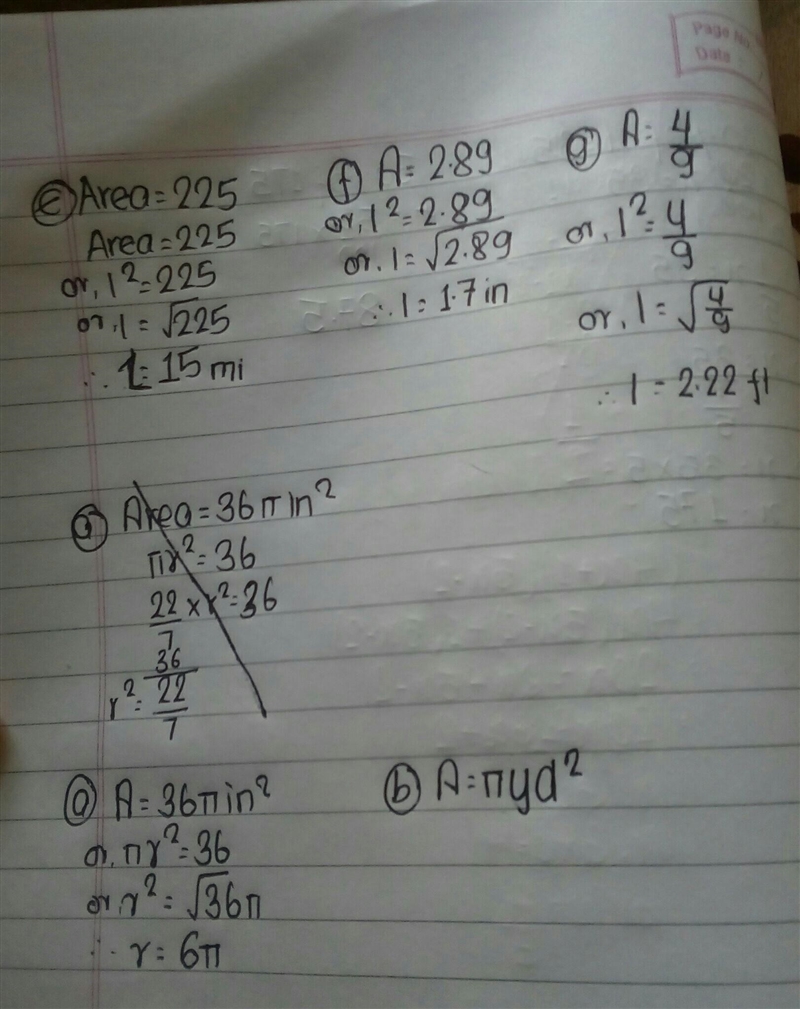 Page No.
Date
ⓔ Area = 225
Area = 225
or, l² = 225
or, l = √225
∴ l = 15 mi
ⓕ A = 2.89
or, l² = 2.89
or, l = √2.89
∴ l = 1.7 in
ⓖ A = 4/9
or, l² = 4/9
or, l = √4/9
∴ l = 2.22 ft
ⓐ Area = 36π in²
πr² = 36
22/7 × r² = 36
r² = 36/22/7
ⓐ A = 36π in²
or, πr² = 36
or, r² = √36π
∴ r = 6π
ⓑ A = π yd²